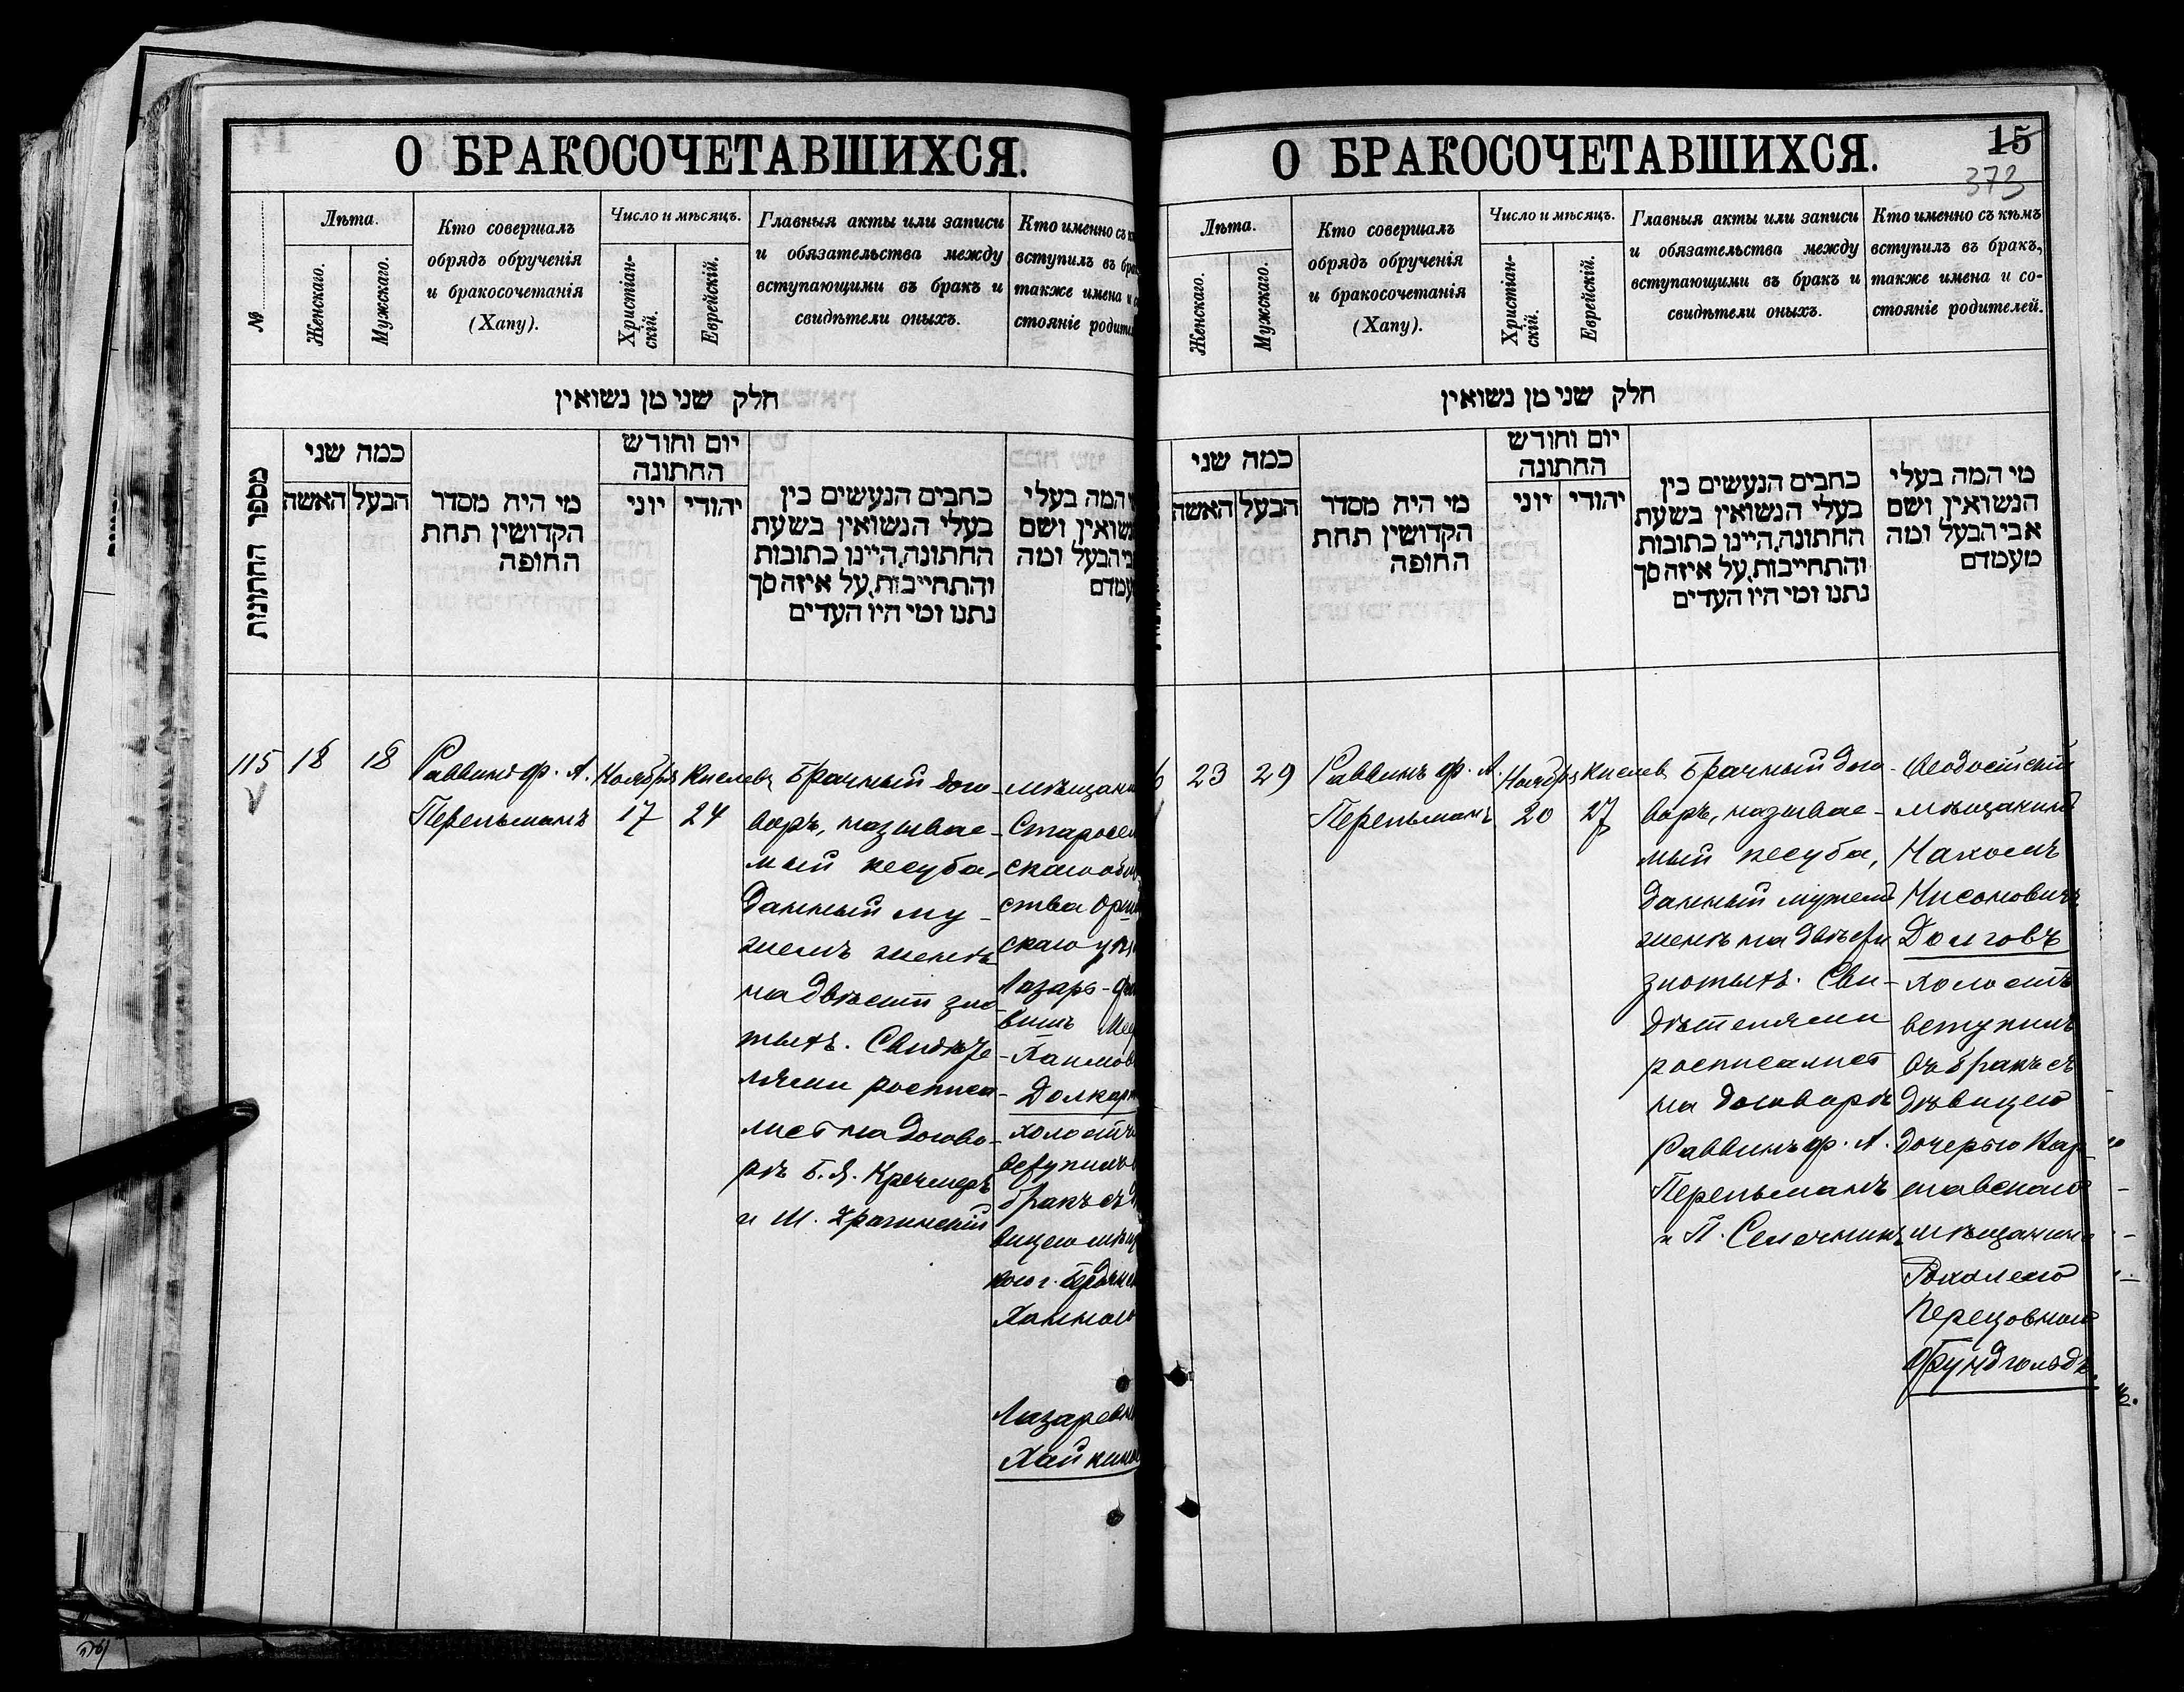 О БРАКОСОЧЕТАВШИХСЯ.
№
Лѣта.
Женскаго.
Мужскаго.
Кто совершалъ
обрядъ обрученія
и бракосочетанія
(Хапу).
Число и мѣсяцъ.
Христіан-
скій.
Еврейскій.
Главныя акты или записи
и обязательства между
вступающими въ бракъ и
свидѣтели оныхъ.
Кто именно съ
вступилъ въ
также имена
стояніе
חלק שני מן נשואין
מספר החתונות
כמה שני
האשה
הבעל
מי היה מסדר
הקדושין תחת
החופה
יום וחודש
החתונה
יוני
יהודי
כתבים הנעשים בין
בעלי הנשואין בשעת
החתונה, היינו כתובות
והתחייבות, על איזה סך
נתנו ומי היו העדים
המה בעלי
ושם
הבעל ומה
115
18
18
Раввинъ ф. А.
Перельманъ
Ноябрь
17
Кислевъ
24
Брачный дого-
воръ, называе-
мый кесуба,
данный му-
жемъ женѣ
на двѣсти зло
тыхъ. Свидѣте
лями росписа-
лись на догово-
рѣ Б. Я. Кречмеръ
и Ш. Драгинскій
Старосел
скаго
ства
скаго
Лазарь-
Хаимов
Долкарт
холостъ
вступилъ
бракъ съ
вицею
Ханною
Лазаревн
Хайкино
О БРАКОСОЧЕТАВШИХСЯ.
15
373
Лѣта.
Женскаго.
Мужскаго.
Кто совершалъ
обрядъ обрученія
и бракосочетанія
(Хапу).
Число и мѣсяцъ.
Христіан-
скій.
Еврейскій.
Главныя акты или записи
и обязательства между
вступающими въ бракъ и
свидѣтели оныхъ.
Кто именно съ кѣмъ
вступилъ въ бракъ,
также имена и со-
стояніе родителей.
חלק שני מן נשואין
כמה שני
האשה
הבעל
מי היה מסדר
הקדושין תחת
החופה
יום וחודש
החתונה
יוני
יהודי
כתבים הנעשים בין
בעלי הנשואין בשעת
החתונה, היינו כתובות
והתחייבות, על איזה סך
נתנו ומי היו העדים
מי המה בעלי
הנשואין ושם
אבי הבעל ומה
מעמדם
6
23
29
Раввинъ ф. А.
Перельманъ
Ноябрь
20
Кислевъ
27
Брачный дого-
воръ, называе-
мый кесуба,
данный мужемъ
женѣ на двѣсти
злотыхъ. Сви-
дѣтелями
росписались
на договорѣ
Раввинъ ф. А.
Перельманъ
и П. Селечникъ
Ѳеодосійскій
мѣщанинъ
Нахомъ
Нисоновичъ
Долговъ
холостъ
вступилъ
въ бракъ съ
дѣвицею
дочерью Кар-
мѣщанина
Рохолею
Перецовною
Фрундгольдъ.